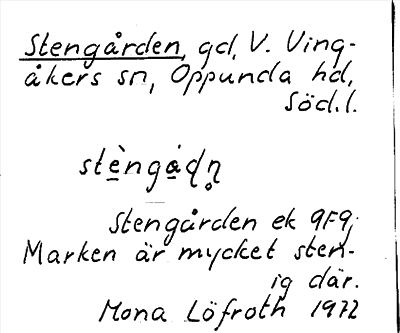 Stengården, gd, V. Ving-
åkers sn, Oppunda hd,
Söd.l.
stèngȧdn̥
Stengården ek 9F9j
Marken är mycket sten-
ig där.
Mona Löfroth 1972